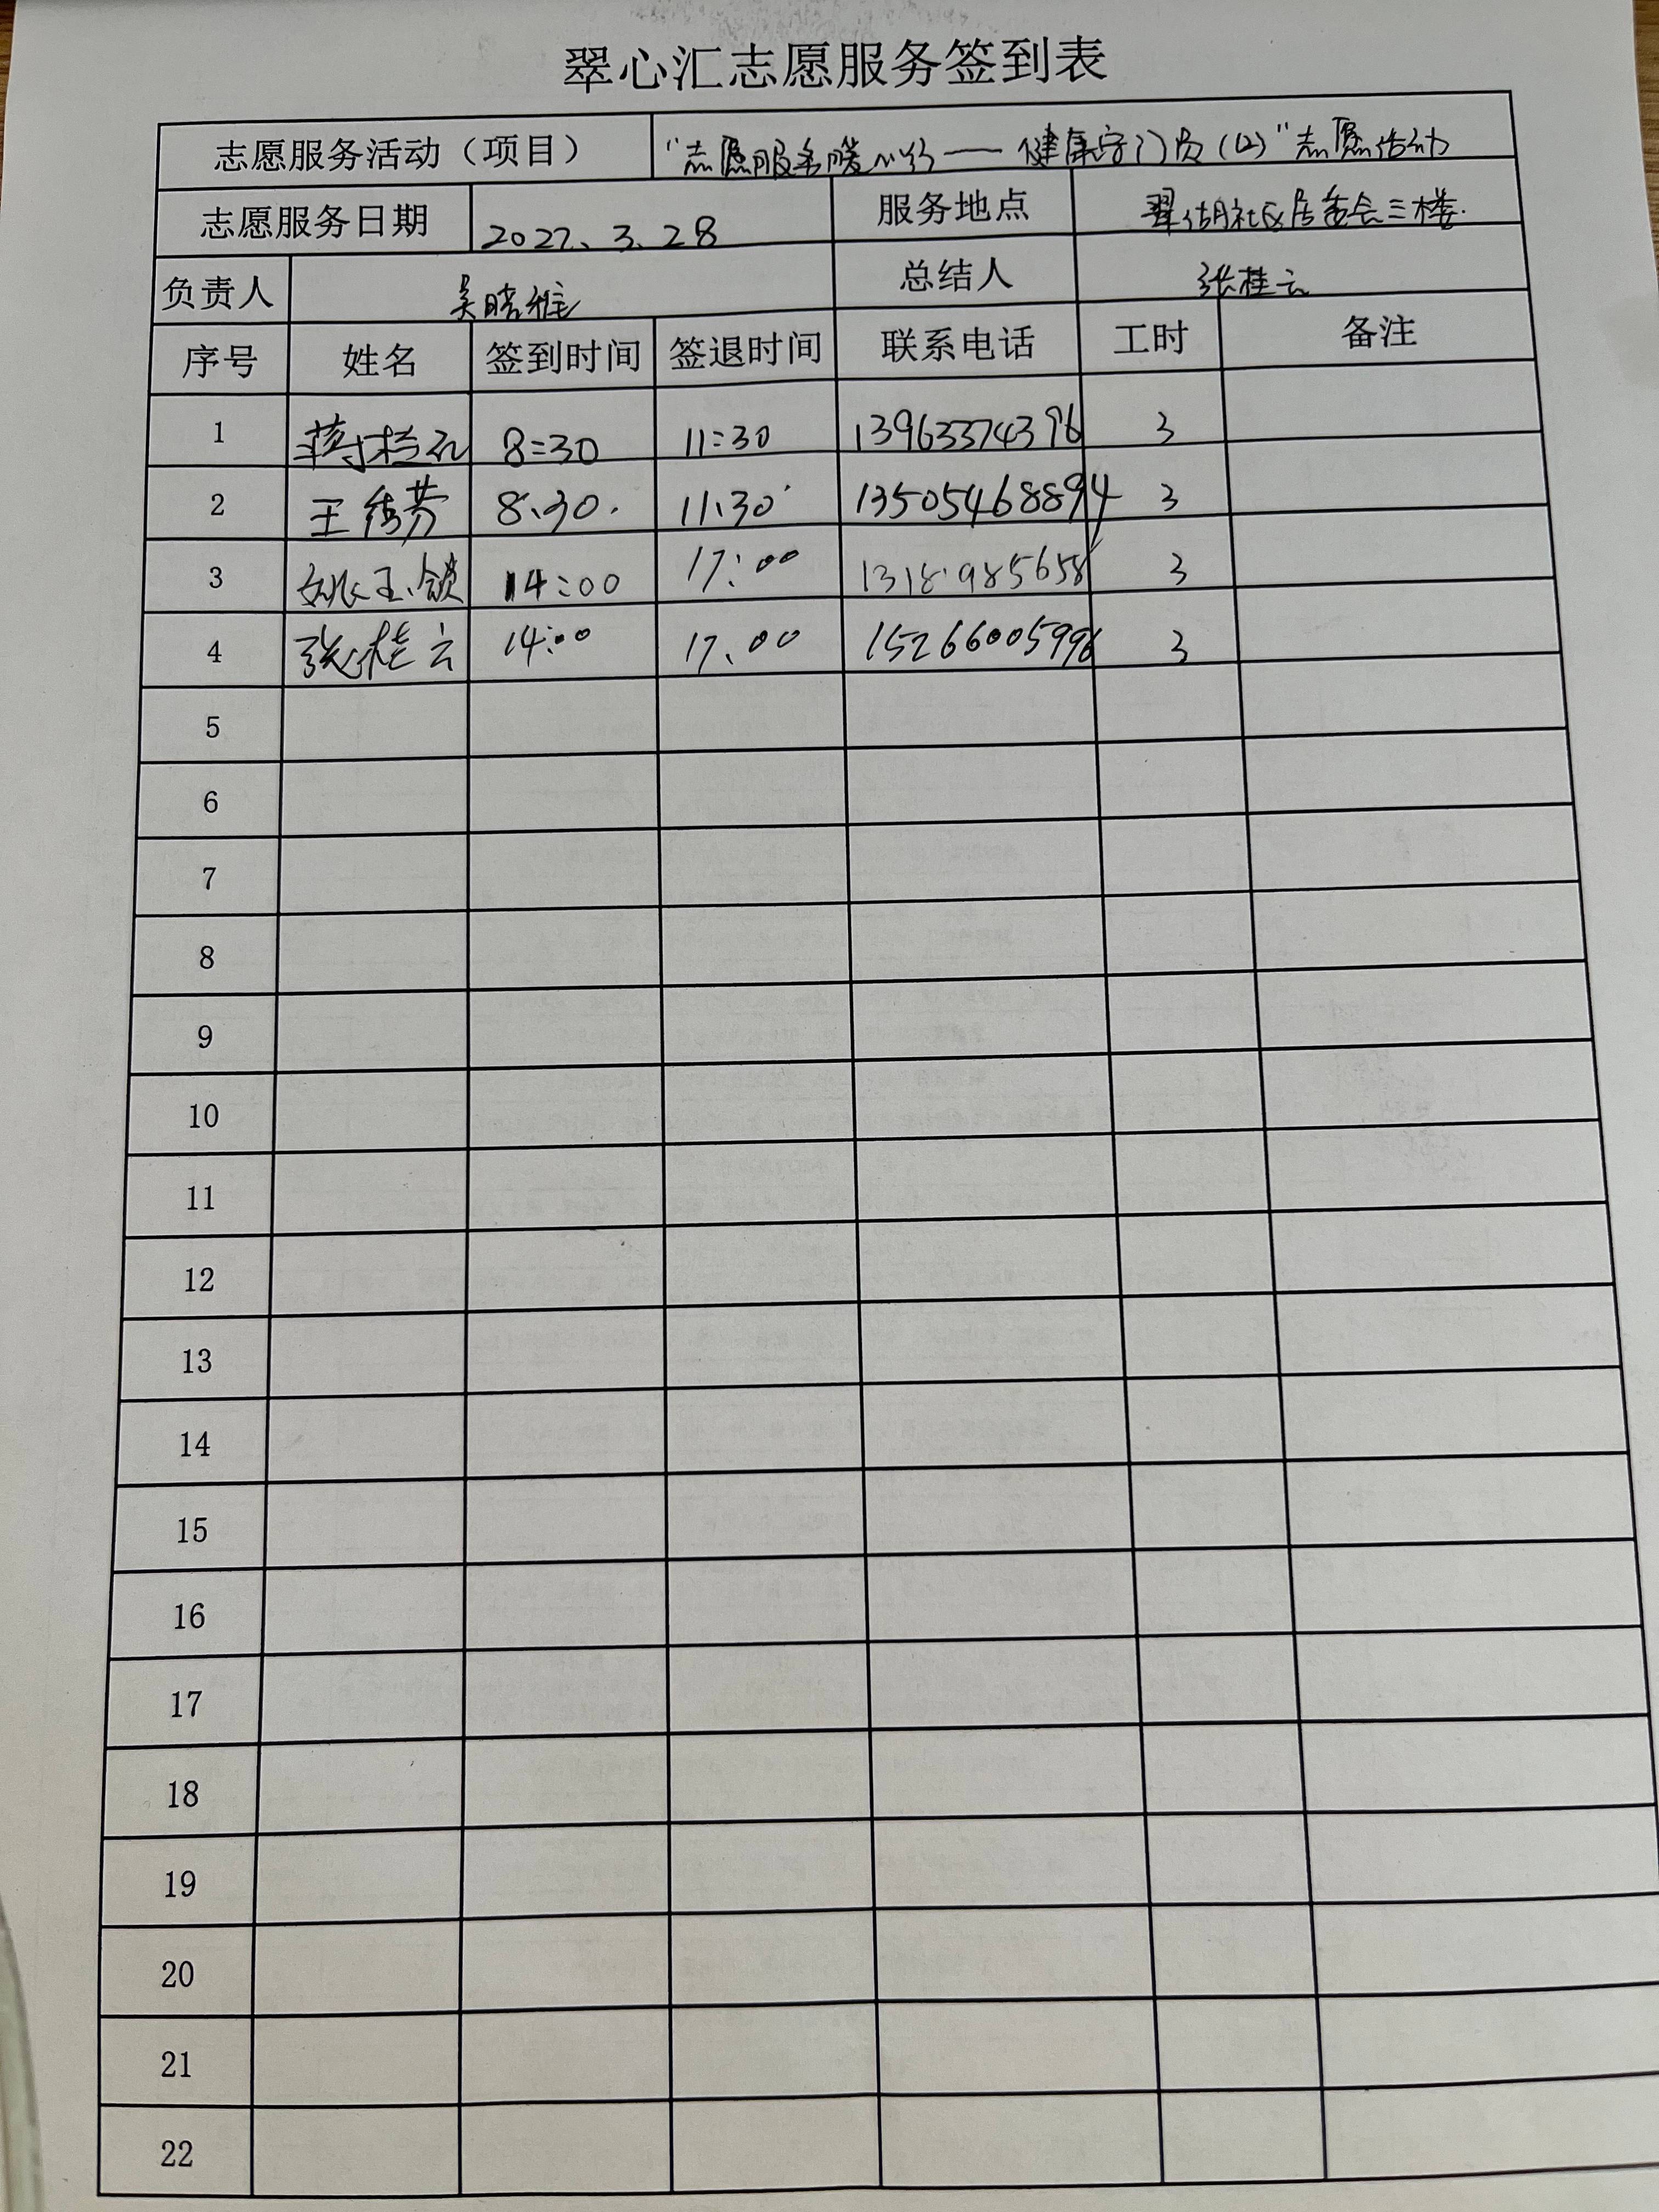 翠心汇志愿服务签到表
志愿服务活动（项目） "志愿服务暖心行——健康守门员(四)"志愿活动
志愿服务日期 2022、3、28 服务地点 翠湖社区居委会三楼.
负责人 吴晓雅 总结人 张桂云
序号 姓名 签到时间 签退时间 联系电话 工时 备注
1 8:30 11:30 13963374396 3
2 王绪芳 8、30. 11、30 13505468894 3
3 姚玉领 14:00 17:00 3
4 张桂云 14:00 17、00 15266005996 3
5
6
7
8
9
10
11
12
13
14
15
16
17
18
19
20
21
22